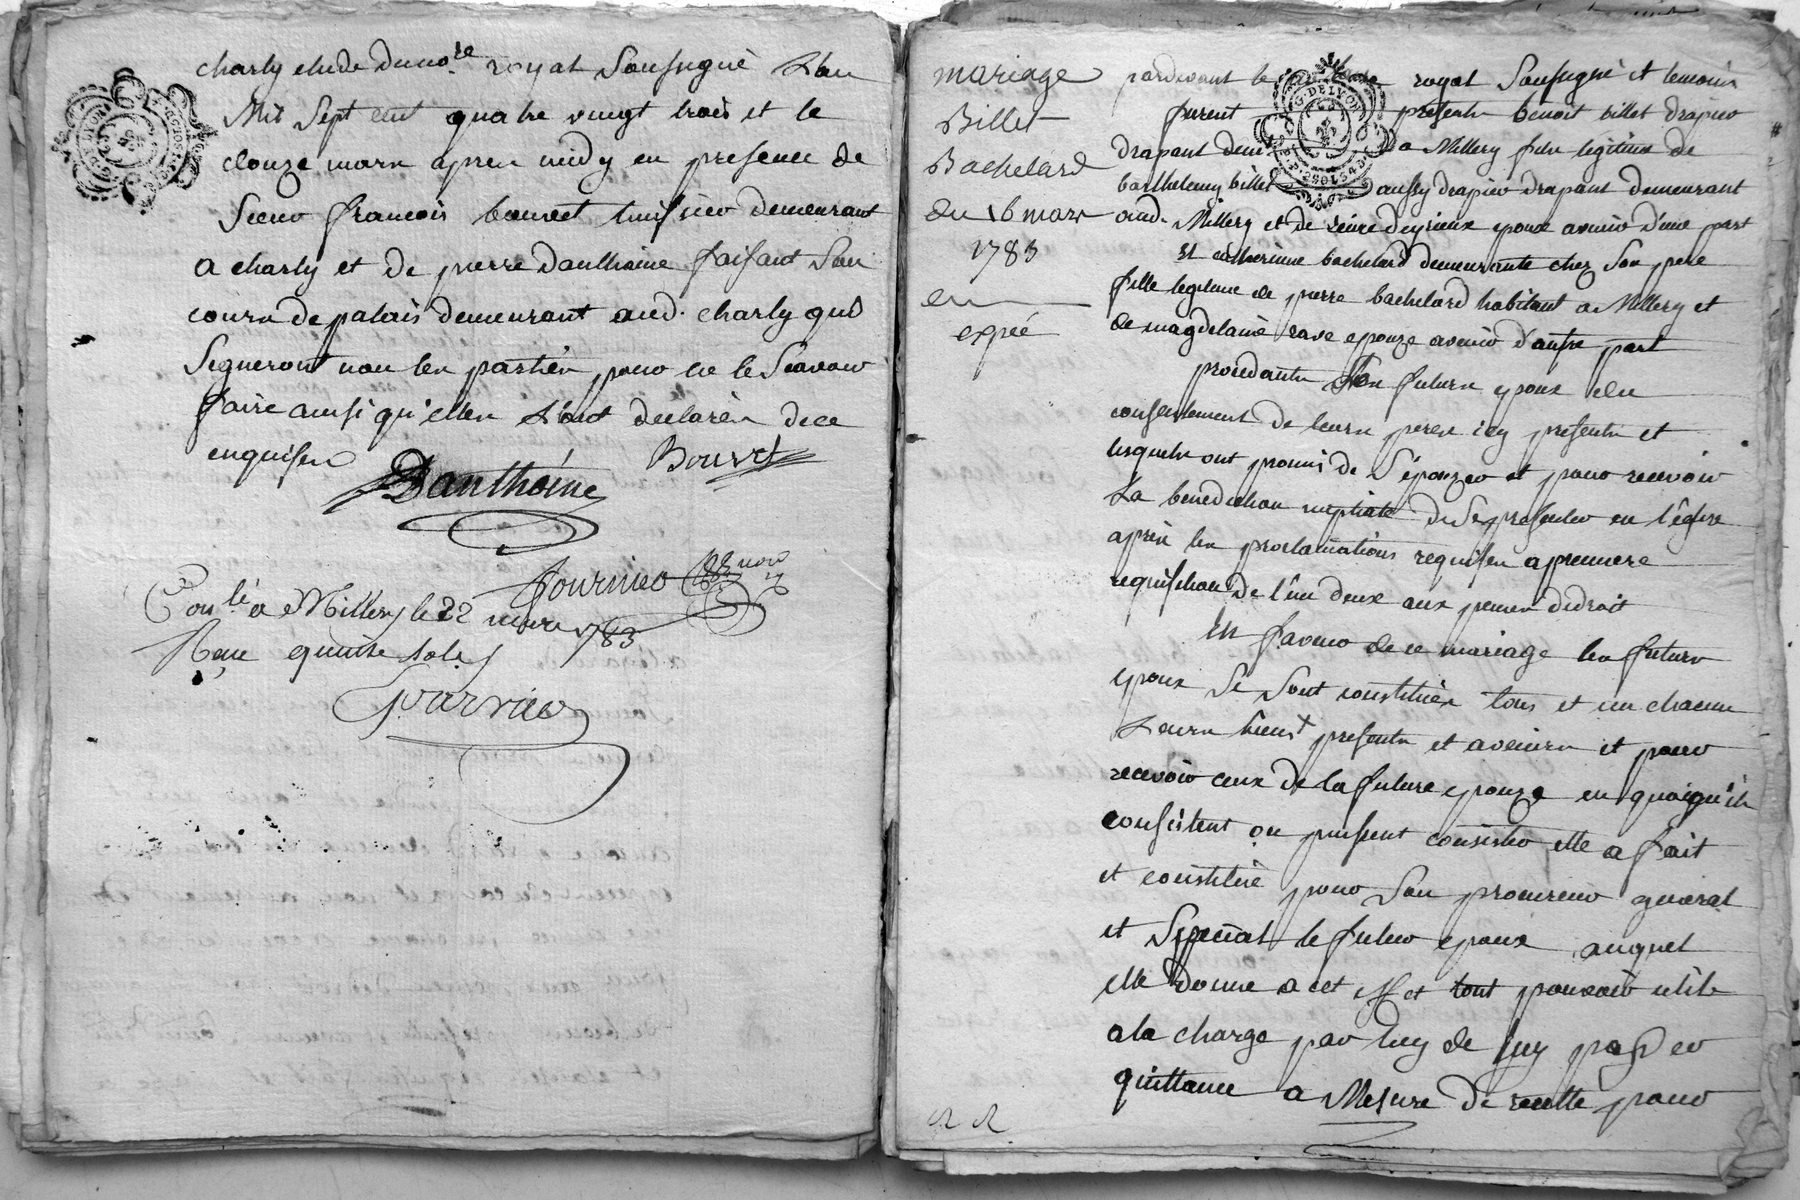 charly etude du no.re royal soussigné L'an
Mil sept cent quatre vingt trois et le
douze mars apres midy en presence de
Sieur francois bouvet huissier demeurant
a charly et de pierre danthoine faisant son
cours de palais demeurant aud. charly qui
signeront non les parties pour ne le scavoir
faire ainsi qu'elles L'ont declarés de ce
enquises
Bouvet
Danthoine
fournier
Con.lé a Millery le 22 mars 1783
Reçu quinze sols
mariage
Billet
Bachelard
du 16 mars
1783
en
expéé
pardevant le royal soussigné et temoins
furent presents benoit billet drapier
drapant dem. a Millery fils legitime de
barthelemy billet aussy drapier drapant demeurant
aud. Millery et de deyrieux epoux avenir d'une part
Et catherinne bachelard demeurante chez son pere
fille legitime de pierre bachelard habitant a Millery et
de magdelaine rave epouze avenir d'autre part
procedants Les futurs epoux du
consentement de leurs peres icy presents et
lesquels ont promis de s'épouzer et pour recevoir
La benediction nuptiale de se presenter en l'églize
après les proclamations requises a premiere
requisition de l'un deux aux peines de droit
En faveur de ce mariage les futurs
epoux se sont constitués tous et un chacuns
Leurs biens presents et avenirs et pour
recevoir ceux de la future epouze en quoi qu'ils
consistent ou puissent consister elle a fait
et constitué pour son procureur general
et special le futur epoux auquel
elle donne a cet eff et tout pouvoir utile
a la charge par luy de luy passer
quittance a Mesure de recette pour